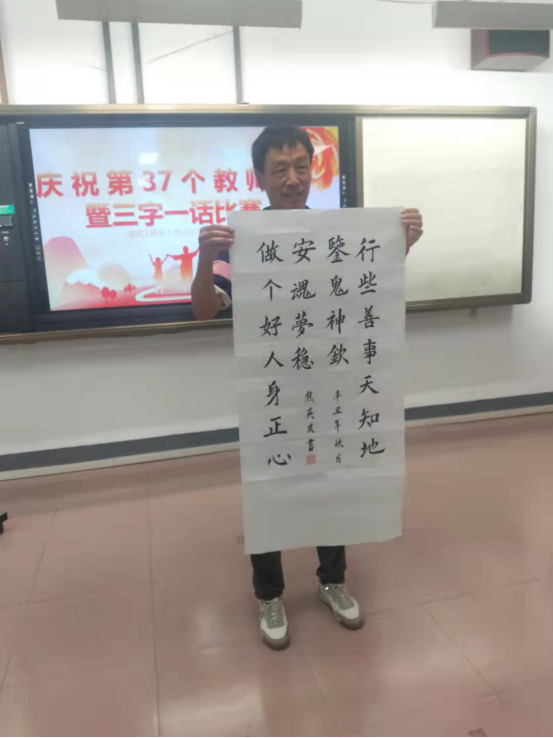 庆祝第37个教师
暨三字一话比赛
行些善事天知地
鑒鬼神欽
辛丑年秋月
做个好人身正心
安魂夢穩